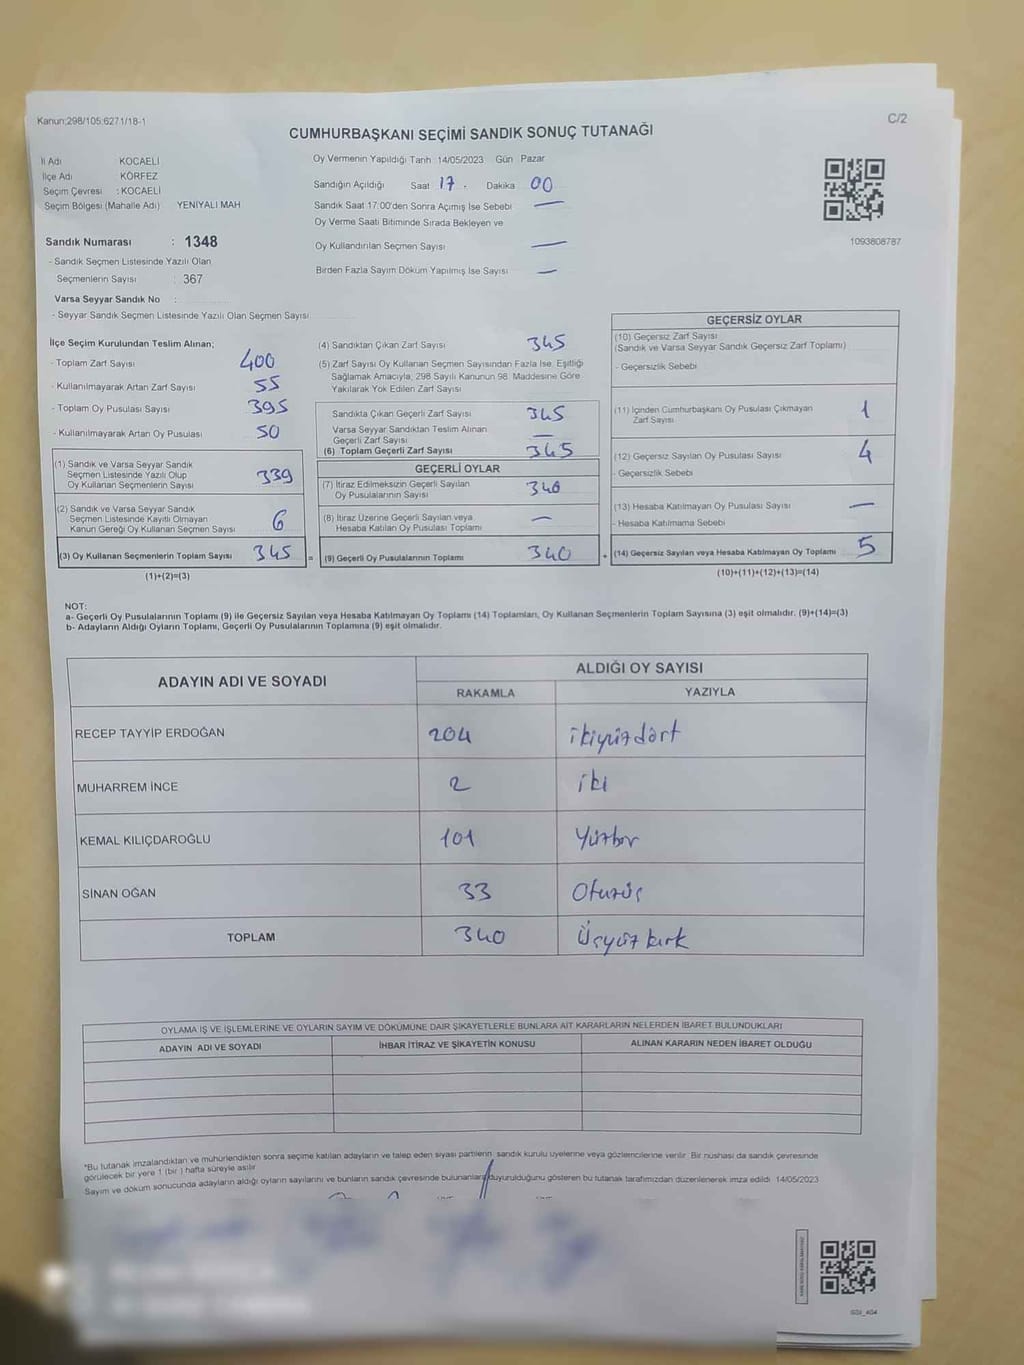 Kanun:298/105:6271/18-1
C/2
CUMHURBAŞKANI SEÇİMİ SANDIK SONUÇ TUTANAĞI
İl Adı KOCAELİ
İlçe Adı KÖRFEZ
Seçim Çevresi : KOCAELİ
Seçim Bölgesi (Mahalle Adı) YENİYALI MAH
Sandık Numarası : 1348
- Sandık Seçmen Listesinde Yazılı Olan
Seçmenlerin Sayısı : 367
Varsa Seyyar Sandık No :
- Seyyar Sandık Seçmen Listesinde Yazılı Olan Seçmen Sayısı
Oy Vermenin Yapıldığı Tarih 14/05/2023 Gün Pazar
Sandığın Açıldığı Saat 17 . Dakika 00
Sandık Saat 17:00'den Sonra Açımış İse Sebebi —
Oy Verme Saati Bitiminde Sırada Bekleyen ve
Oy Kullandırılan Seçmen Sayısı —
Birden Fazla Sayım Döküm Yapılmış İse Sayısı —
1093808787
İlçe Seçim Kurulundan Teslim Alınan;
- Toplam Zarf Sayısı 400
- Kullanılmayarak Artan Zarf Sayısı 55
- Toplam Oy Pusulası Sayısı 395
- Kullanılmayarak Artan Oy Pusulası 50
(1) Sandık ve Varsa Seyyar Sandık
Seçmen Listesinde Yazılı Olup
Oy Kullanan Seçmenlerin Sayısı 339
(2) Sandık ve Varsa Seyyar Sandık
Seçmen Listesinde Kayıtlı Olmayan
Kanun Gereği Oy Kullanan Seçmen Sayısı 6
(3) Oy Kullanan Seçmenlerin Toplam Sayısı 345 =
(1)+(2)=(3)
(4) Sandıktan Çıkan Zarf Sayısı 345
(5) Zarf Sayısı Oy Kullanan Seçmen Sayısından Fazla İse, Eşitliği
Sağlamak Amacıyla, 298 Sayılı Kanunun 98. Maddesine Göre
Yakılarak Yok Edilen Zarf Sayısı
Sandıkta Çıkan Geçerli Zarf Sayısı 345
Varsa Seyyar Sandıktan Teslim Alınan
Geçerli Zarf Sayısı —
(6) Toplam Geçerli Zarf Sayısı 345
GEÇERLİ OYLAR
(7) İtiraz Edilmeksizin Geçerli Sayılan
Oy Pusulalarının Sayısı 340
(8) İtiraz Üzerine Geçerli Sayılan veya
Hesaba Katılan Oy Pusulası Toplamı —
(9) Geçerli Oy Pusulalarının Toplamı 340 +
GEÇERSİZ OYLAR
(10) Geçersiz Zarf Sayısı
(Sandık ve Varsa Seyyar Sandık Geçersiz Zarf Toplamı)
- Geçersizlik Sebebi
(11) İçinden Cumhurbaşkanı Oy Pusulası Çıkmayan
Zarf Sayısı 1
(12) Geçersiz Sayılan Oy Pusulası Sayısı 4
- Geçersizlik Sebebi
(13) Hesaba Katılmayan Oy Pusulası Sayısı —
- Hesaba Katılmama Sebebi
(14) Geçersiz Sayılan veya Hesaba Katılmayan Oy Toplamı 5
(10)+(11)+(12)+(13)=(14)
NOT:
a- Geçerli Oy Pusulalarının Toplamı (9) ile Geçersiz Sayılan veya Hesaba Katılmayan Oy Toplamı (14) Toplamları, Oy Kullanan Seçmenlerin Toplam Sayısına (3) eşit olmalıdır. (9)+(14)=(3)
b- Adayların Aldığı Oyların Toplamı, Geçerli Oy Pusulalarının Toplamına (9) eşit olmalıdır.
ADAYIN ADI VE SOYADI
ALDIĞI OY SAYISI
RAKAMLA YAZIYLA
RECEP TAYYİP ERDOĞAN 204 ikiyüzdört
MUHARREM İNCE 2 iki
KEMAL KILIÇDAROĞLU 101 Yüzbir
SİNAN OĞAN 33 Otuzüç
TOPLAM 340 Üçyüzkırk
OYLAMA İŞ VE İŞLEMLERİNE VE OYLARIN SAYIM VE DÖKÜMÜNE DAİR ŞİKAYETLERLE BUNLARA AİT KARARLARIN NELERDEN İBARET BULUNDUKLARI
ADAYIN ADI VE SOYADI İHBAR İTİRAZ VE ŞİKAYETİN KONUSU ALINAN KARARIN NEDEN İBARET OLDUĞU
*Bu tutanak imzalandıktan ve mühürlendikten sonra seçime katılan adayların ve talep eden siyasi partilerin sandık kurulu üyelerine veya gözlemcilerine verilir. Bir nüshası da sandık çevresinde
görülecek bir yere 1 (bir ) hafta süreyle asılır.
Sayım ve döküm sonucunda adayların aldığı oyların sayılarını ve bunların sandık çevresinde bulunanlara duyurulduğunu gösteren bu tutanak tarafımızdan düzenlenerek imza edildi 14/05/2023